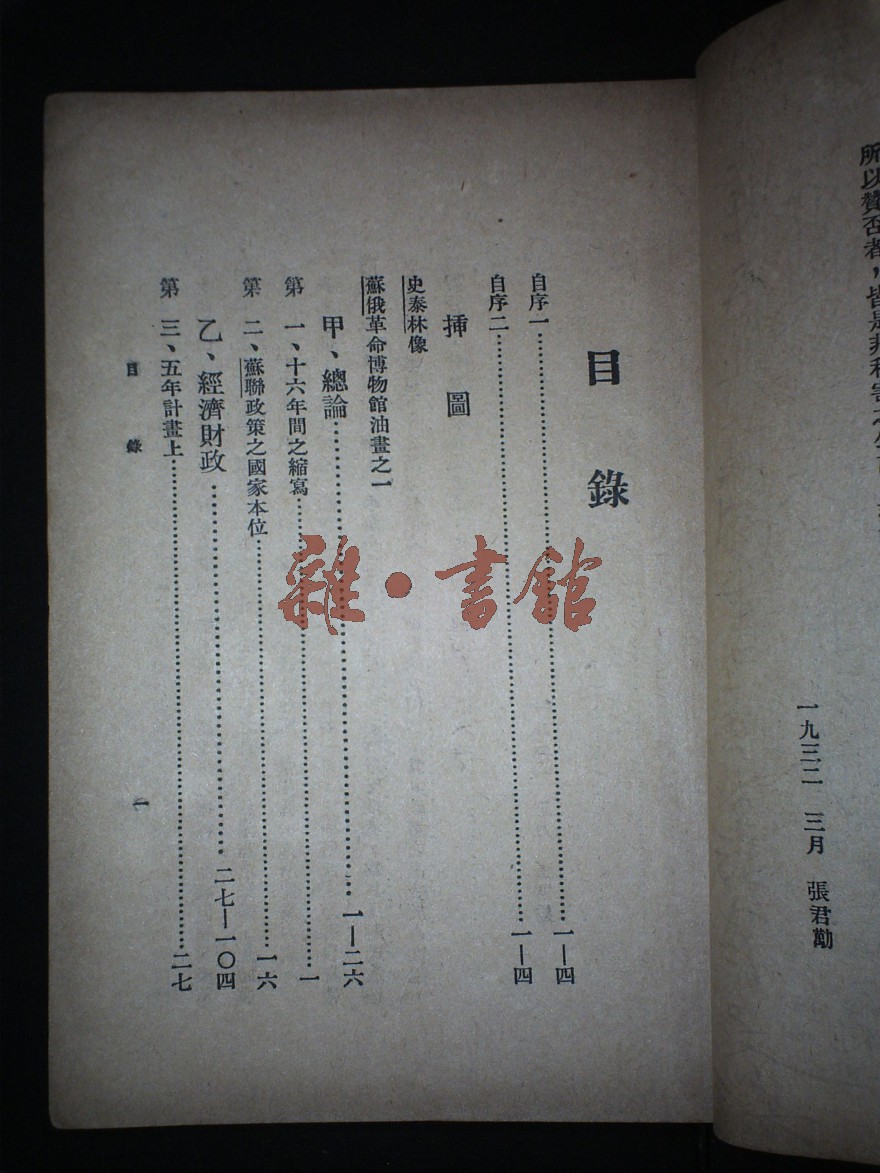 所以贊否者，皆是非利害之
一九三二　三月　張君勱
目　錄
自序一……一—四
自序二……一—四
挿　圖
史泰林像
蘇俄革命博物館油畫之一
甲、總論……一—二六
第一、十六年間之縮寫……一
第二、蘇聯政策之國家本位……一六
乙、經濟財政……二七—一〇四
第三、五年計畫上……二七
目　錄
一
雜・書館